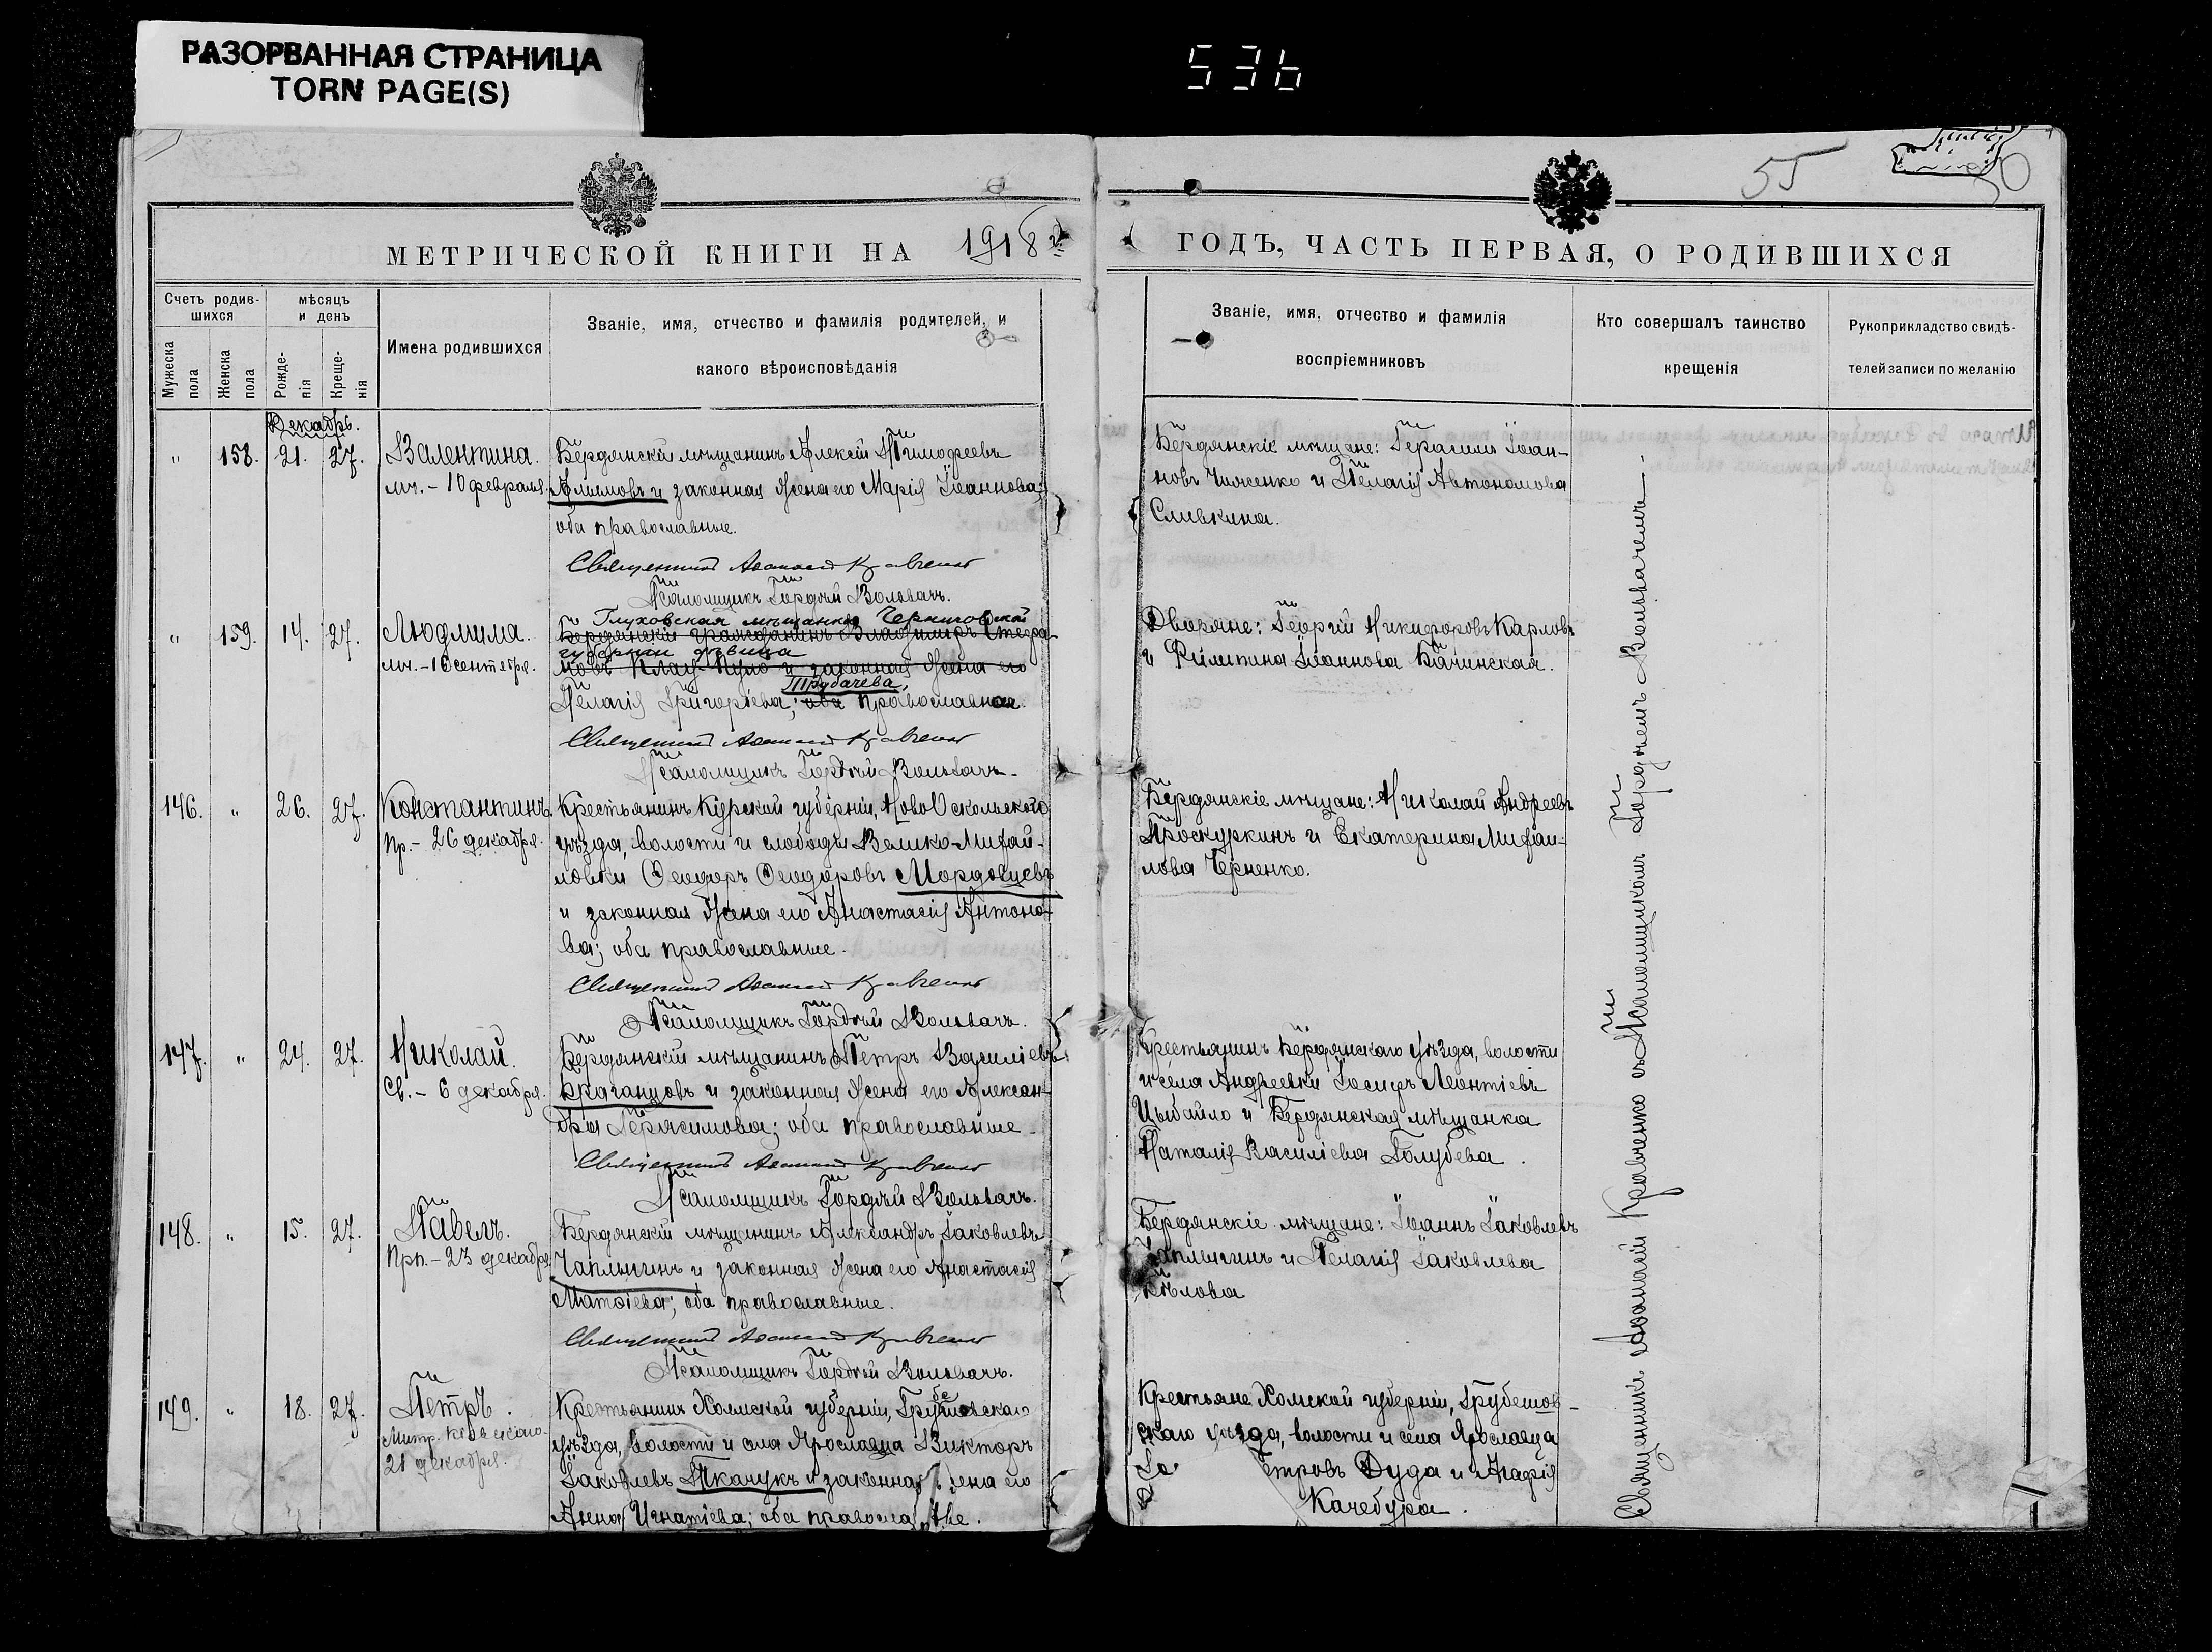 РАЗОРВАННАЯ СТРАНИЦА
TORN PAGE(S)
536
55
МЕТРИЧЕСКОЙ КНИГИ НА 1918 г.
ГОДЪ, ЧАСТЬ ПЕРВАЯ, О РОДИВШИХСЯ
Счетъ родив-
шихся
мѣсяцъ
и денъ
Мужеска
пола
Женска
пола
Рожде-
нія
Креще-
нія
Имена родившихся
Званіе, имя, отчество и фамилія родителей, и
какого вѣроисповѣданія
Званіе, имя, отчество и фамилія
воспріемниковъ
Кто совершалъ таинство
крещенія
Рукоприкладство свидѣ-
телей записи по желанію
Декабрь.
" 158. 21. 27. Валентина.
мч. - 10 февраля.
Бердянскій мѣщанинъ Алексѣй Тимофеевъ
Алимовъ и законная жена его Марія Іоаннова;
оба православные.
Священникъ Аѳанасій Кравченко
Псаломщикъ Гордѣй Вольвачъ.
Бердянскіе мѣщане: Герасимъ Іоан-
новъ Чиженко и Пелагія Автономова
Сливкина.
" 159. 14. 27. Людмила.
мч. - 16 сентября.
Глуховская мѣщанка Черниговской
Бердянскій гражданинъ Владимиръ Стефа-
губерніи дѣвица
новъ и законная жена его
Трубачева,
Пелагія Григоріева; оба православная.
Священникъ Аѳанасій Кравченко
Псаломщикъ Гордѣй Вольвачъ.
Дворяне: Георгій Никифоровъ Карповъ
и Филипина Іоаннова Бачинская.
146. " 26. 27. Константинъ.
пр. - 26 декабря.
Крестьянинъ Курской губерніи, Ново Оскольскаго
уѣзда, волости и слободы Велико-Михай-
ловки Ѳеодоръ Ѳеодоровъ Мордовцевъ
и законная жена его Анастасія Антоно-
ва; оба православные.
Священникъ Аѳанасій Кравченко
Псаломщикъ Гордѣй Вольвачъ.
Бердянскіе мѣщане: Николай Андреевъ
Проскуркинъ и Екатерина Михаи-
лова Черненко.
147. " 24. 27. Николай.
Св. - 6 декабря.
Бердянскій мѣщанинъ Петръ Василіевъ
Браганцовъ и законная жена его Алексан-
дра Герасимова; оба православные.
Священникъ Аѳанасій Кравченко
Псаломщикъ Гордѣй Вольвачъ.
Крестьянинъ Бердянскаго уѣзда, волости
и села Андреевки Іосифъ Леонтіевъ
Цыбайло и Бердянская мѣщанка
Наталія Василіева Голубева.
148. " 15. 27. Павелъ.
Прп. - 23 декабря
Бердянскій мѣщанинъ Александръ Іаковлевъ
Чаплыгинъ и законная жена его Анастасія
Матѳіева; оба православные.
Священникъ Аѳанасій Кравченко
Псаломщикъ Гордѣй Вольвачъ.
Бердянскіе мѣщане: Іоаннъ Іаковлевъ
Чаплыгинъ и Пелагія Іаковлева
Бѣлова
149. " 18. 27. Петръ.
Митр. Кіевскаго.
21 декабря.
Крестьянинъ Холмской губерніи, Грубешовскаго
уѣзда, волости и села Ярославца Викторъ
Іаковлевъ Ткачукъ и законная жена его
Анна Игнатіева; оба православные.
Крестьяне Холмской губерніи, Грубешов-
скаго уѣзда, волости и села Ярославца
етровъ Дуда и Агафія
Качебура.
Священникъ Аѳанасій Кравченко съ Псаломщикомъ Гордѣемъ Вольвачемъ.